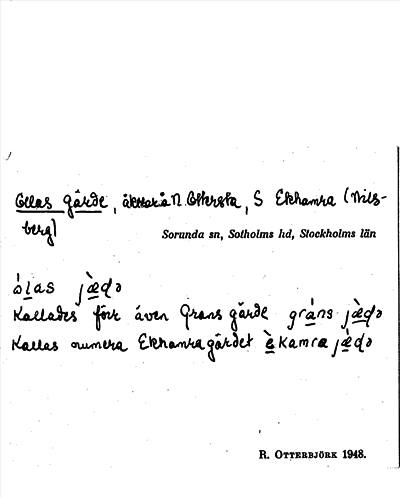 Ollas gärde, åkrar å N. Ottersta, S Ekhamra (Nils-
berg)
Sorunda sn, Sotholms hd, Stockholms län
ò̱las jæ̱̀ḍə
Kallades förr även Grans gärde grá̱ns jæ̱̀ḍə
Kallas numera Ekhamragärdet è̱kamrajæ̱̀ḍə
R. OTTERBJÖRK 1948.